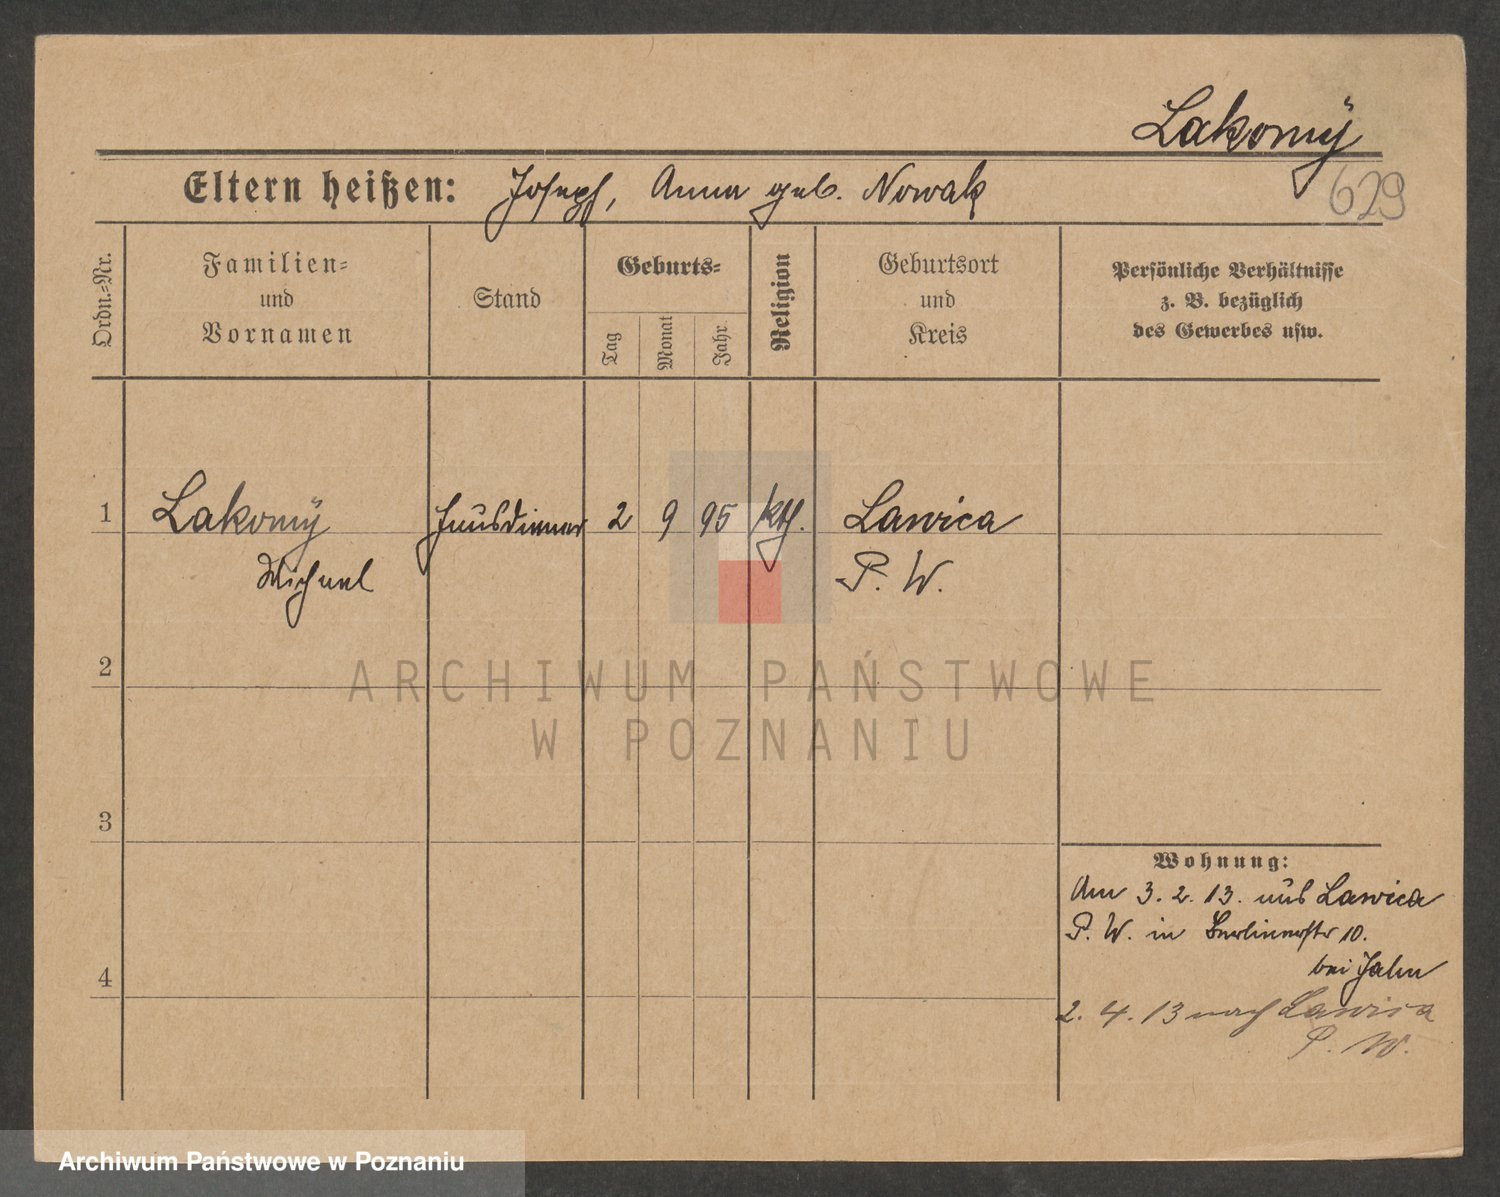 Lakomÿ
629
Eltern heißen: Joseph, Anna geb. Nowak
Ordn.-Nr.
Familien-
und
Vornamen
Stand
Geburts-
Tag
Monat
Jahr
Religion
Geburtsort
und
Kreis
Persönliche Verhältnisse
z. B. bezüglich
des Gewerbes usw.
1 Lakomÿ Hausdiener 2 9 95 kth. Lawica
Michael P. W.
2
3
4
Wohnung:
Am 3. 2. 13. aus Lawica
P. W. in Berlinerstr 10.
bei Jahn
2. 4. 13 nach Lawica
P. W.
ARCHIWUM PAŃSTWOWE
W POZNANIU
Archiwum Państwowe w Poznaniu